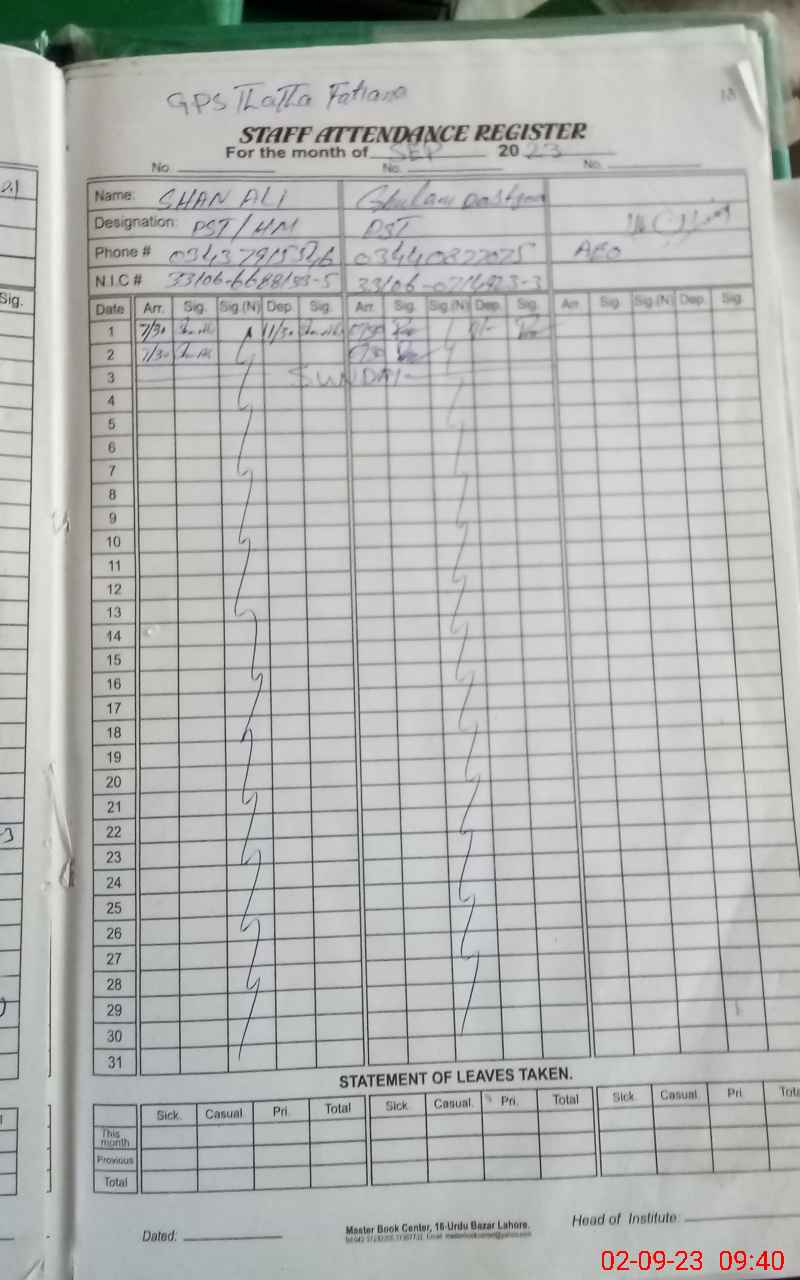 GPS ThaTha Fatiana
13
STAFF ATTENDANCE REGISTER
For the month of SEP 2023
No. No. No.
Name: SHAN ALI Ghulam Dastgeer
Designation: PST/HM PST
Phone # 03440822025 AEO
N.I.C # 33106-6688193-5
Date Arr. Sig. Sig.(N) Dep. Sig. Arr. Sig. Sig.(N) Dep. Sig. Arr. Sig. Sig.(N) Dep. Sig.
1 7/30 11/30
2 7/30
3 SUNDAY
4
5
6
7
8
9
10
11
12
13
14
15
16
17
18
19
20
21
22
23
24
25
26
27
28
29
30
31
STATEMENT OF LEAVES TAKEN.
Sick. Casual Pri. Total Sick. Casual. Pri. Total Sick. Casual Pri.
This month
Previous
Total
Dated: Master Book Center, 16-Urdu Bazar Lahore. Head of Institute:
02-09-23 09:40
Sig.